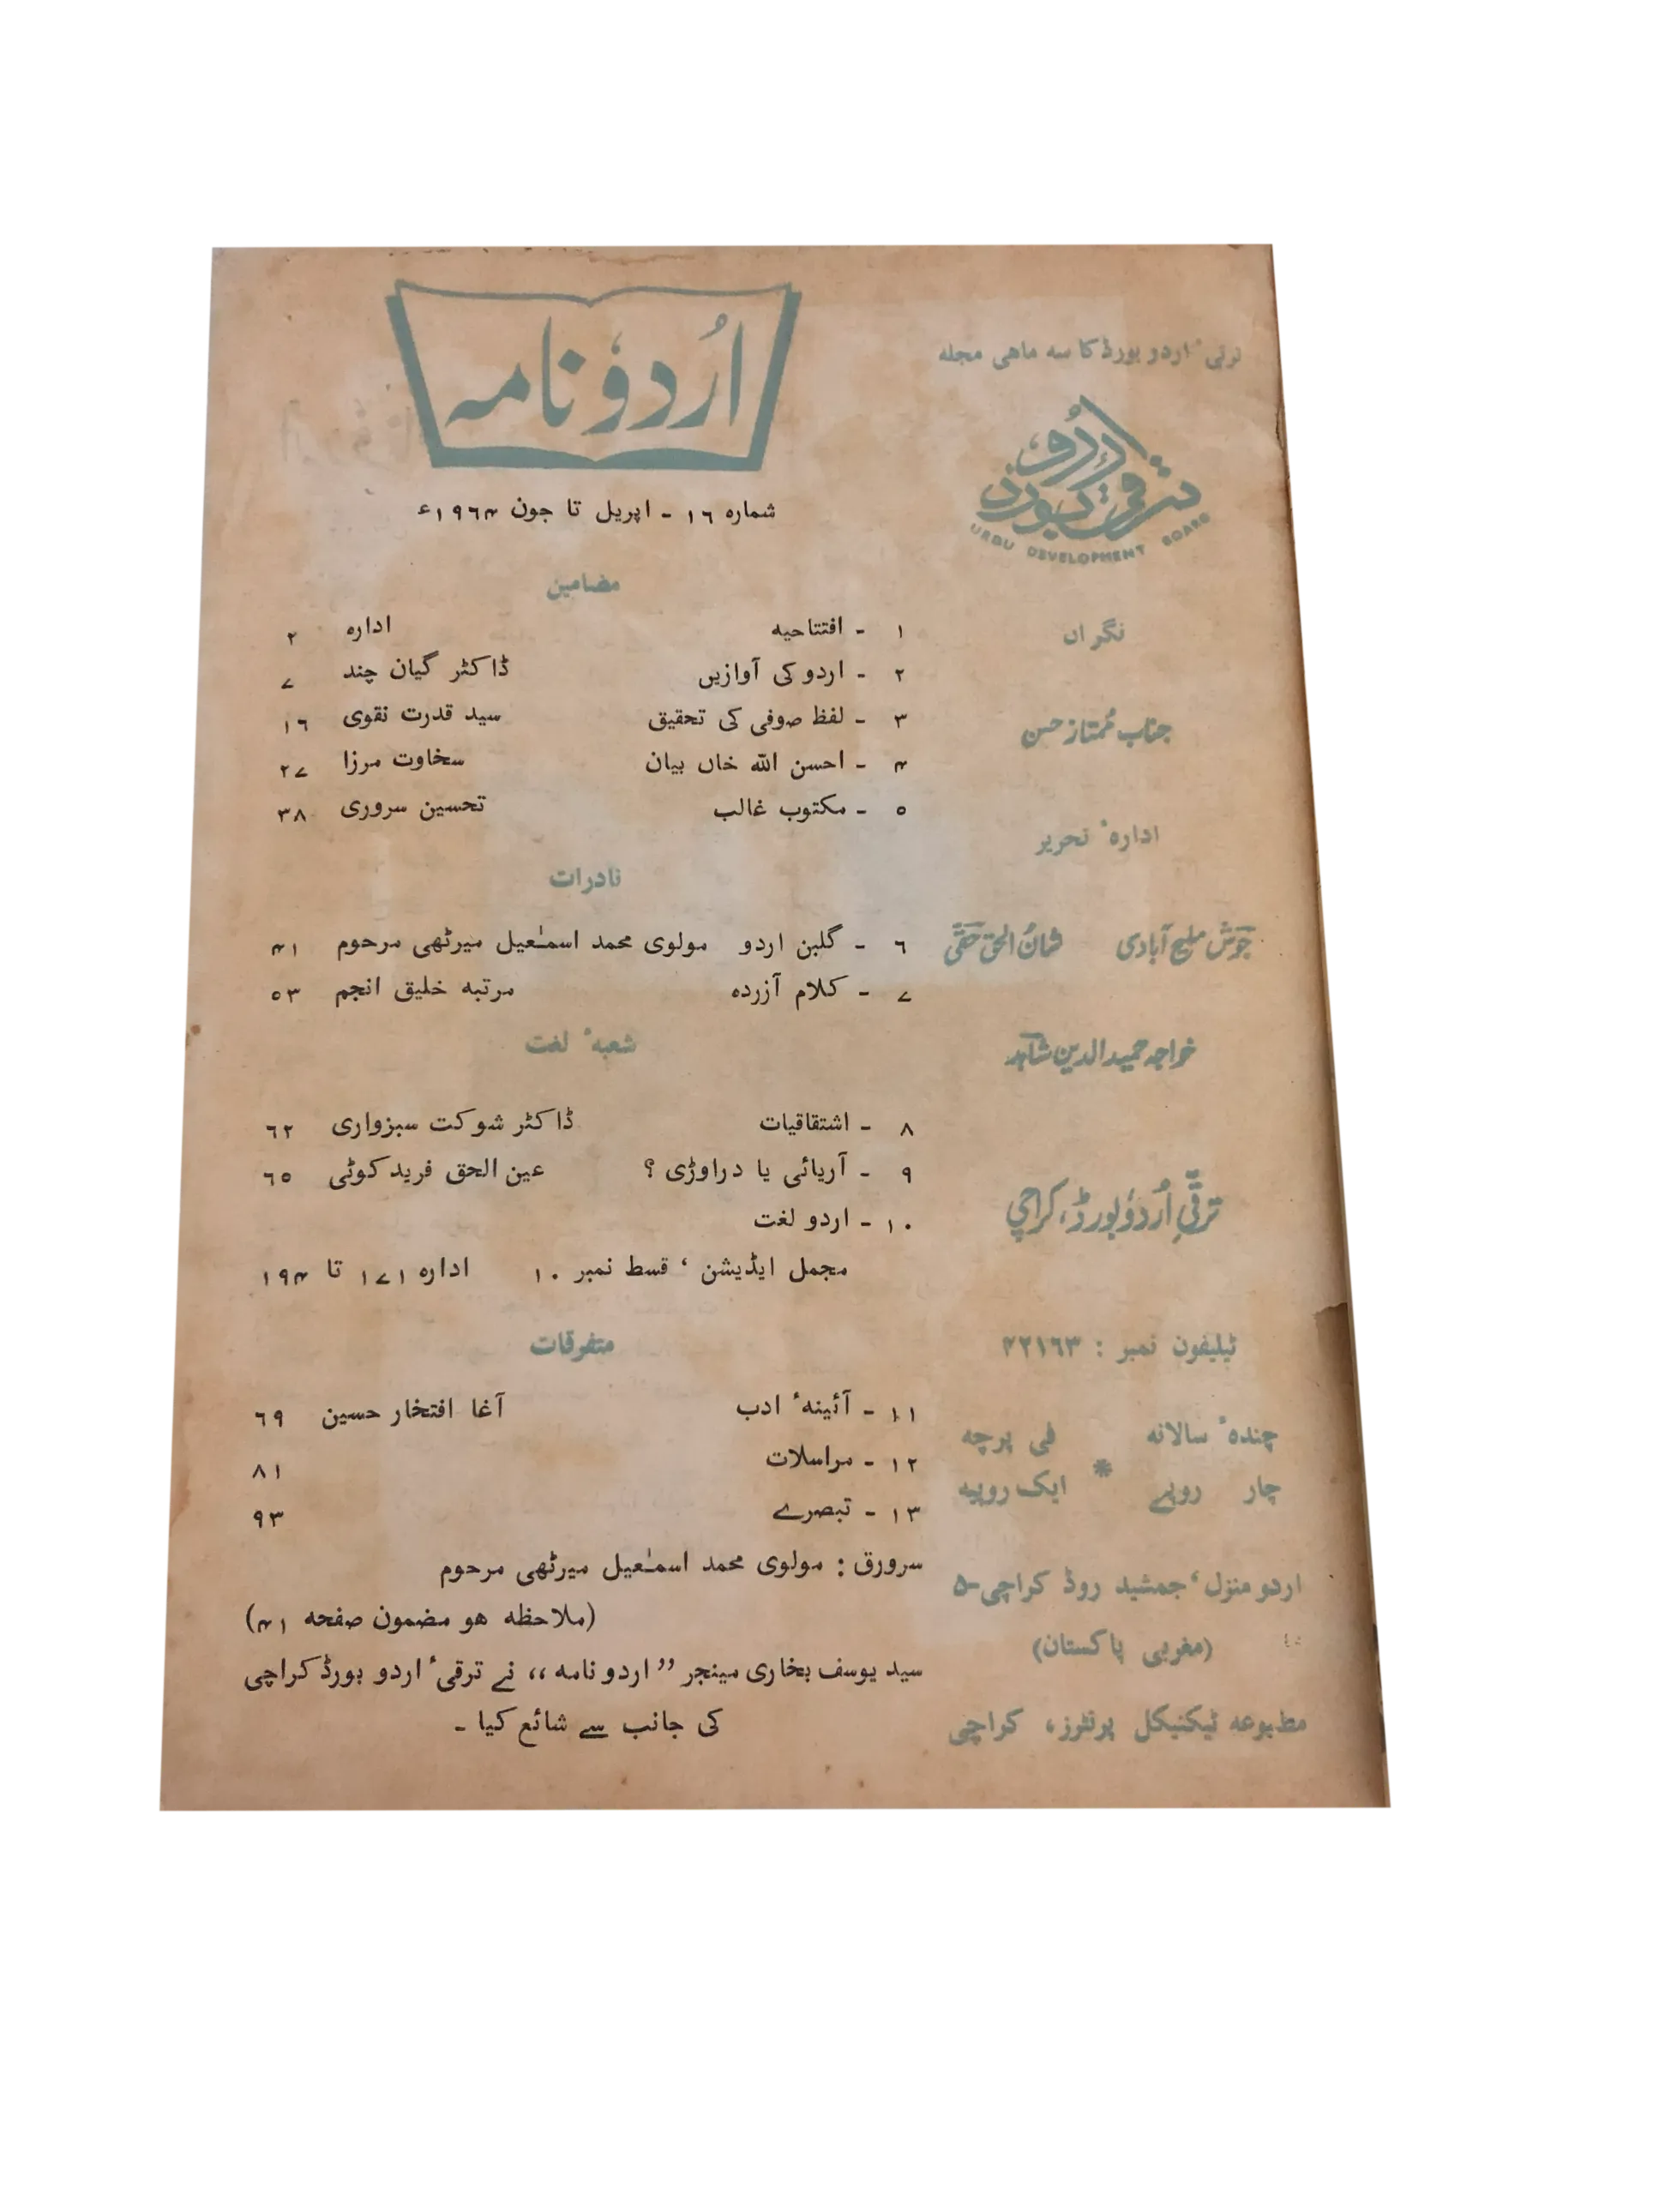 ترقیٔ اردو بورڈ کا سہ ماہی مجلہ
ترقی اردو بورڈ
URDU DEVELOPMENT BOARD
نگراں
جناب ممتاز حسن
ادارہٴ تحریر
جوش ملیح آبادی شان الحق حقی
خواجہ حمید الدین شاہد
ترقیِ اُردو بورڈ، کراچی
ٹیلیفون نمبر : ۴۲۱۶۳
چندہٴ سالانہ فی پرچہ
چار روپے * ایک روپیہ
اردو منزل، جمشید روڈ کراچی-۵
(مغربی پاکستان)
مطبوعہ ٹیکنیکل پرنٹرز، کراچی
اُردو نامہ
شمارہ ۱۶ - اپریل تا جون ۱۹۶۴ء
مضامین
۱ - افتتاحیہ ادارہ ۲
۲ - اردو کی آوازیں ڈاکٹر گیان چند ۷
۳ - لفظ صوفی کی تحقیق سید قدرت نقوی ۱۶
۴ - احسن اللہ خاں بیان سخاوت مرزا ۲۷
۵ - مکتوب غالب تحسین سروری ۳۸
نادرات
۶ - گلبن اردو مولوی محمد اسمٰعیل میرٹھی مرحوم ۴۱
۷ - کلام آزردہ مرتبہ خلیق انجم ۵۳
شعبہٴ لغت
۸ - اشتقاقیات ڈاکٹر شوکت سبزواری ۶۲
۹ - آریائی یا دراوڑی ؟ عین الحق فرید کوٹی ۶۵
۱۰ - اردو لغت
مجمل ایڈیشن ، قسط نمبر ۱۰ ادارہ ۱۷۱ تا ۱۹۴
متفرقات
۱۱ - آئینہٴ ادب آغا افتخار حسین ۶۹
۱۲ - مراسلات ۸۱
۱۳ - تبصرے ۹۳
سرورق : مولوی محمد اسمٰعیل میرٹھی مرحوم
(ملاحظہ ہو مضمون صفحہ ۴۱)
سید یوسف بخاری مینجر ”اردو نامہ“ نے ترقیٔ اردو بورڈ کراچی
کی جانب سے شائع کیا -